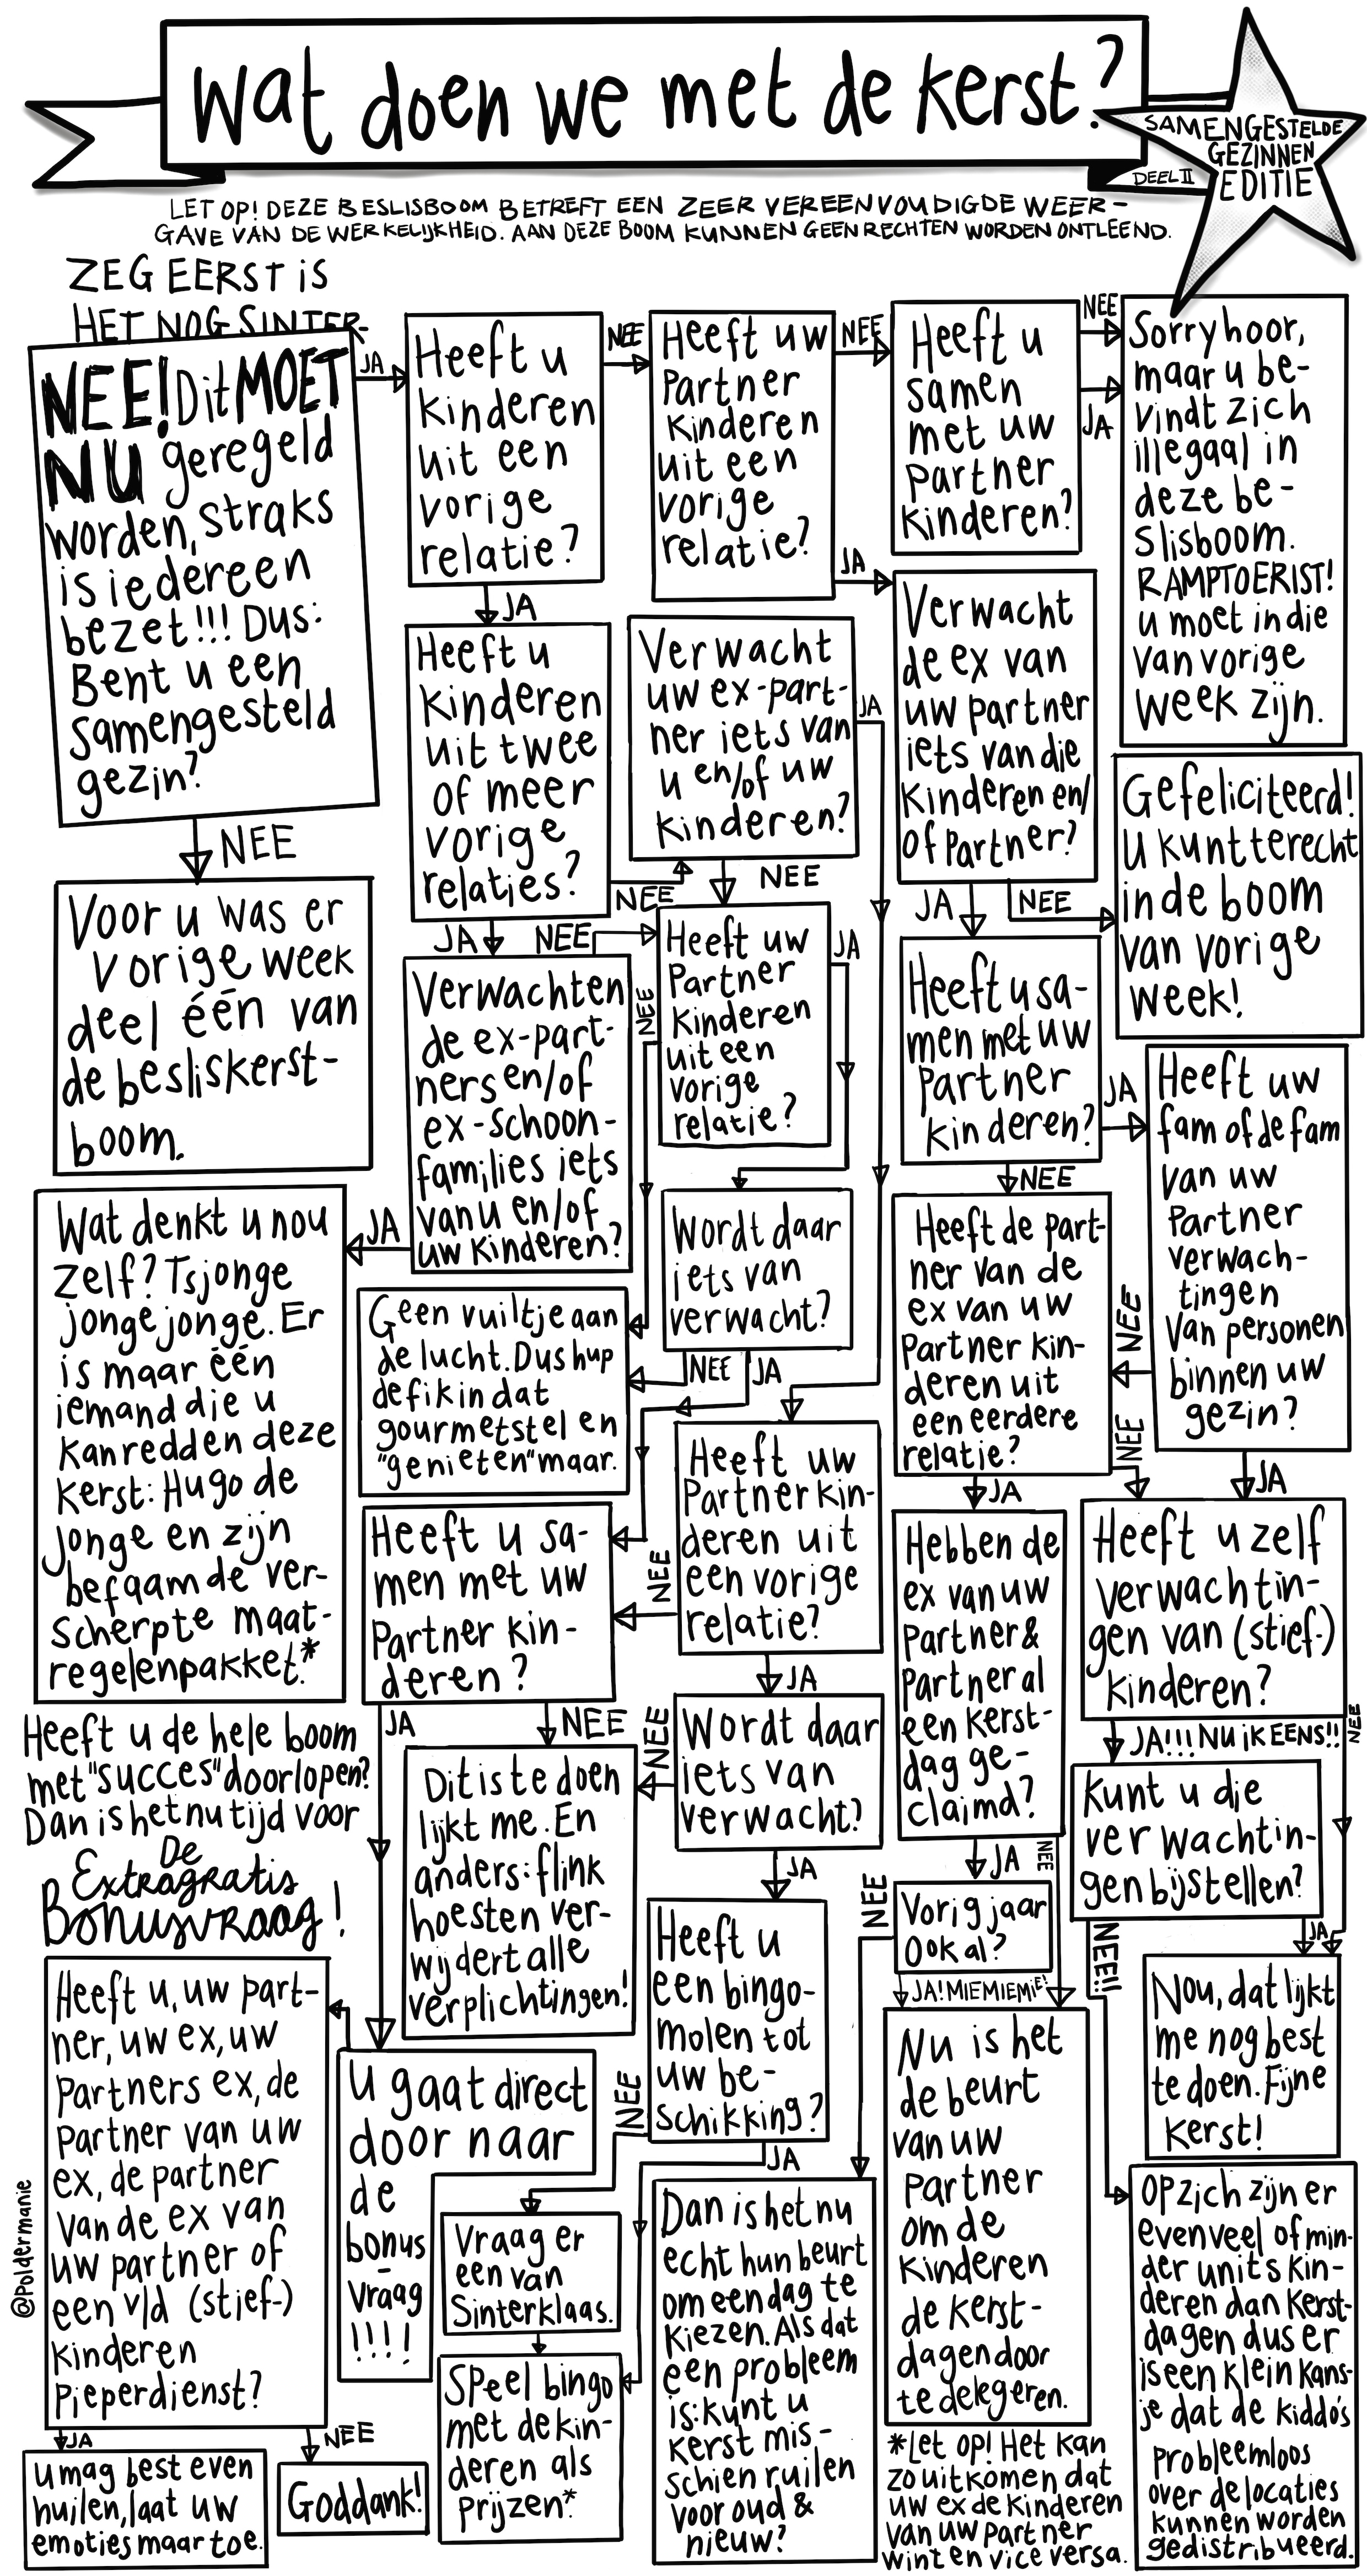 Wat doen we met de kerst?
SAMENGESTELDE
GEZINNEN
EDITIE
DEEL II
LET OP! DEZE BESLISBOOM BETREFT EEN ZEER VEREENVOUDIGDE WEER-
GAVE VAN DE WERKELIJKHEID. AAN DEZE BOOM KUNNEN GEEN RECHTEN WORDEN ONTLEEND.
ZEG EERST IS
HET NOG SINTER-
NEE! Dit MOET
NU geregeld
worden, straks
is iedereen
bezet!!! Dus:
Bent u een
samengesteld
gezin?
JA
NEE
Voor u was er
vorige week
deel één van
de besliskerst-
boom.
Heeft u
kinderen
uit een
vorige
relatie?
NEE
JA
Heeft uw
Partner
kinderen
uit een
vorige
relatie?
NEE
JA
Heeft u
samen
met uw
partner
kinderen?
NEE
JA
Sorry hoor,
maar u be-
vindt zich
illegaal in
deze be-
slisboom.
RAMPTOERIST!
u moet in die
van vorige
week zijn.
Heeft u
kinderen
uit twee
of meer
vorige
relaties?
NEE
JA
Verwacht
uw ex-part-
ner iets van
u en/of uw
kinderen?
JA
NEE
Verwacht
de ex van
uw partner
iets van die
kinderen en/
of Partner?
JA
NEE
Gefeliciteerd!
U kunt terecht
in de boom
van vorige
week!
Verwachten
de ex-part-
ners en/of
ex-schoon-
families iets
van u en/of
uw kinderen?
NEE
JA
Heeft uw
Partner
kinderen
uit een
vorige
relatie?
JA
NEE
Heeft u sa-
men met uw
partner
kinderen?
JA
NEE
Heeft uw
fam of de fam
van uw
partner
verwach-
tingen
van personen
binnen uw
gezin?
NEE
JA
Wat denkt u nou
zelf? Tsjonge
jongejonge. Er
is maar één
iemand die u
kan redden deze
kerst: Hugo de
Jonge en zijn
befaamde ver-
scherpte maat-
regelenpakket.*
Wordt daar
iets van
verwacht?
NEE
JA
Geen vuiltje aan
de lucht. Dus hup
de fik in dat
gourmetstel en
"genieten" maar.
Heeft de part-
ner van de
ex van uw
Partner kin-
deren uit
een eerdere
relatie?
NEE
JA
Heeft u sa-
men met uw
Partner kin-
deren?
JA
NEE
Heeft uw
Partner kin-
deren uit
een vorige
relatie?
NEE
JA
Hebben de
ex van uw
Partner &
Partner al
een kerst-
dag ge-
claimd?
JA
NEE
Heeft u zelf
verwachtin-
gen van (stief-)
kinderen?
JA!!! NU IK EENS!!
NEE
Dit is te doen
lijkt me. En
anders: flink
hoesten ver-
wijdert alle
verplichtingen!
Wordt daar
iets van
verwacht?
NEE
JA
Vorig jaar
ook al?
NEE
JA! MIEMIEMIE!
Kunt u die
verwachtin-
gen bijstellen?
JA
NEE!!
Nou, dat lijkt
me nog best
te doen. Fijne
kerst!
Heeft u de hele boom
met "succes" doorlopen?
Dan is het nu tijd voor
De
Extragratis
Bonusvraag!
Heeft u, uw part-
ner, uw ex, uw
partners ex, de
partner van uw
ex, de partner
van de ex van
uw partner of
een v/d (stief-)
kinderen
pieperdienst?
JA
NEE
u mag best even
huilen, laat uw
emoties maar toe.
Goddank!
U gaat direct
door naar
de
bonus
-
vraag
!!!!
Heeft u
een bingo-
molen tot
uw be-
schikking?
NEE
JA
Vraag er
een van
Sinterklaas.
Speel bingo
met de kin-
deren als
prijzen.*
Dan is het nu
echt hun beurt
om een dag te
kiezen. Als dat
een probleem
is: kunt u
kerst mis-
schien ruilen
voor oud &
nieuw?
Nu is het
de beurt
van uw
partner
om de
kinderen
de kerst-
dagen door
te delegeren.
Op zich zijn er
evenveel of min-
der units kin-
deren dan kerst-
dagen dus er
is een klein kans-
je dat de kiddo's
probleemloos
over de locaties
kunnen worden
gedistribueerd.
*Let op! Het kan
zo uitkomen dat
uw ex de kinderen
van uw partner
wint en vice versa.
@Poldermanie